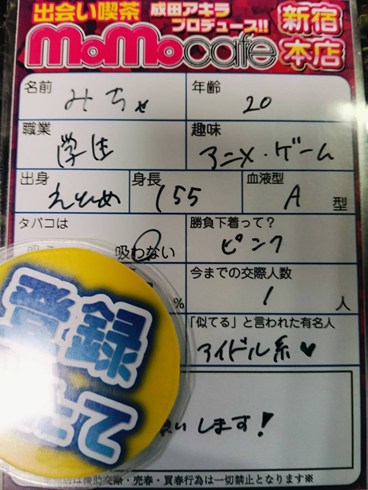 出会い喫茶 成田アキラ プロデュース!! 新宿本店
MoMocafe
名前 みちゃ 年齢 20
職業 学生 趣味 アニメ・ゲーム
出身 えひめ 身長 155 血液型 A 型
タバコは 吸わない 勝負下着って? ピンク
% 今までの交際人数 1 人
「似てる」と言われた有名人 アイドル系♥
登録
します!
売春・買春行為は一切禁止となります※